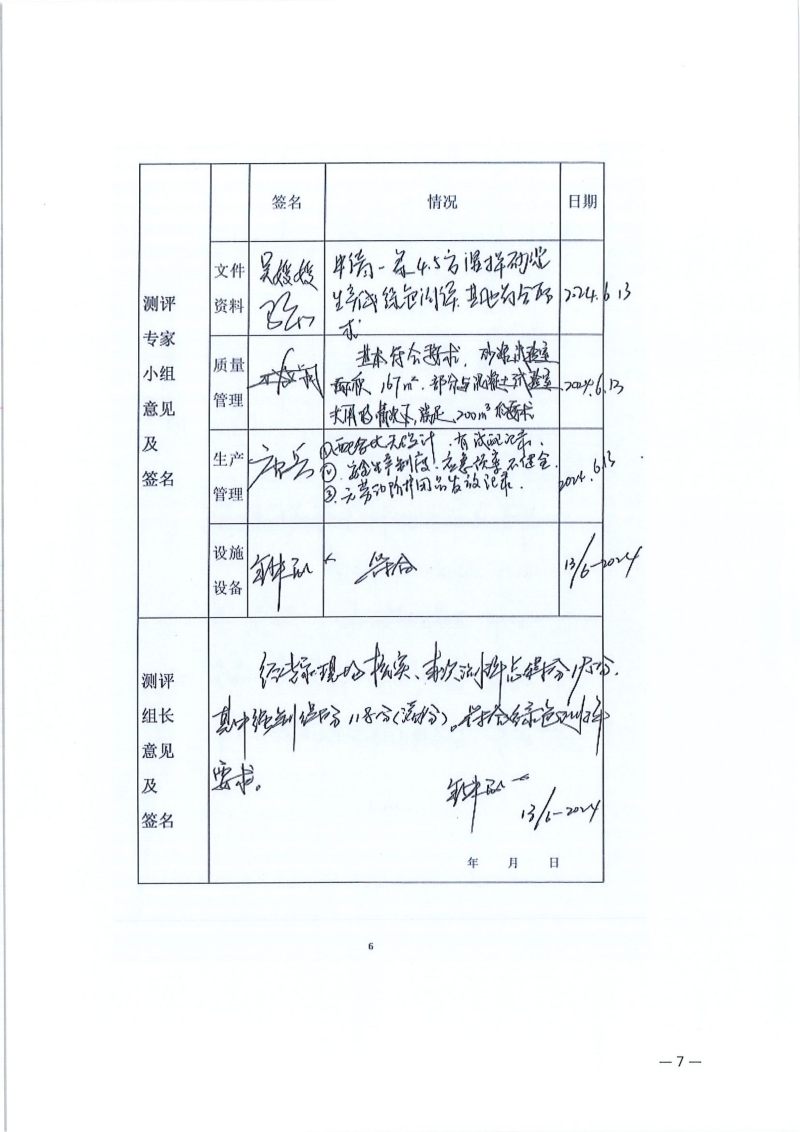 签名 情况 日期
测评
专家
小组
意见
及
签名
文件
资料
吴嫒嫒
申请一条4.5方混拌砂浆
生产线绿色测评,基本符合要
求
2024.6.13
质量
管理
基本符合要求,砂浆试验室
面积167m²,部分与混凝土试验室
共用的情况下,满足200m³的要求
2024.6.13
生产
管理
有试配记录.
②安全生产制度、应急预案不健全.
③无劳动防护用品发放记录.
2024.6.13
设施
设备
符合
13/6-2024
测评
组长
意见
及
签名
经专家现场核实、本次测评总得分
其中强制得分118分(满分)。符合绿色测评
要求。
13/6-2024
年 月 日
6
— 7 —